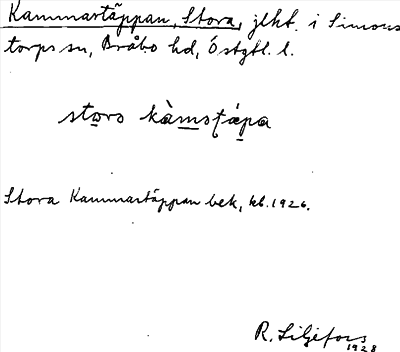 Kammartäppan, Stora, jlht. i Simons
torps sn, Bråbo hd, Östgtl. l.
storo kàmsʈápa
Stora Kammartäppan bek, kb. 1926.
R. Liljefors
1928